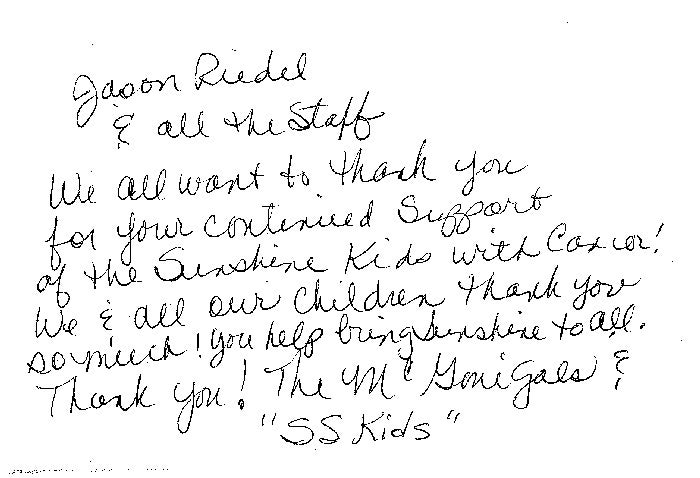 Jason Riedel
& all the Staff
We all want to thank you
for your continued Support
of the Sunshine Kids with Cancer!
We & all our children thank you
so much! you help bring Sunshine to all.
Thank you! The McGonigals &
"SS Kids"